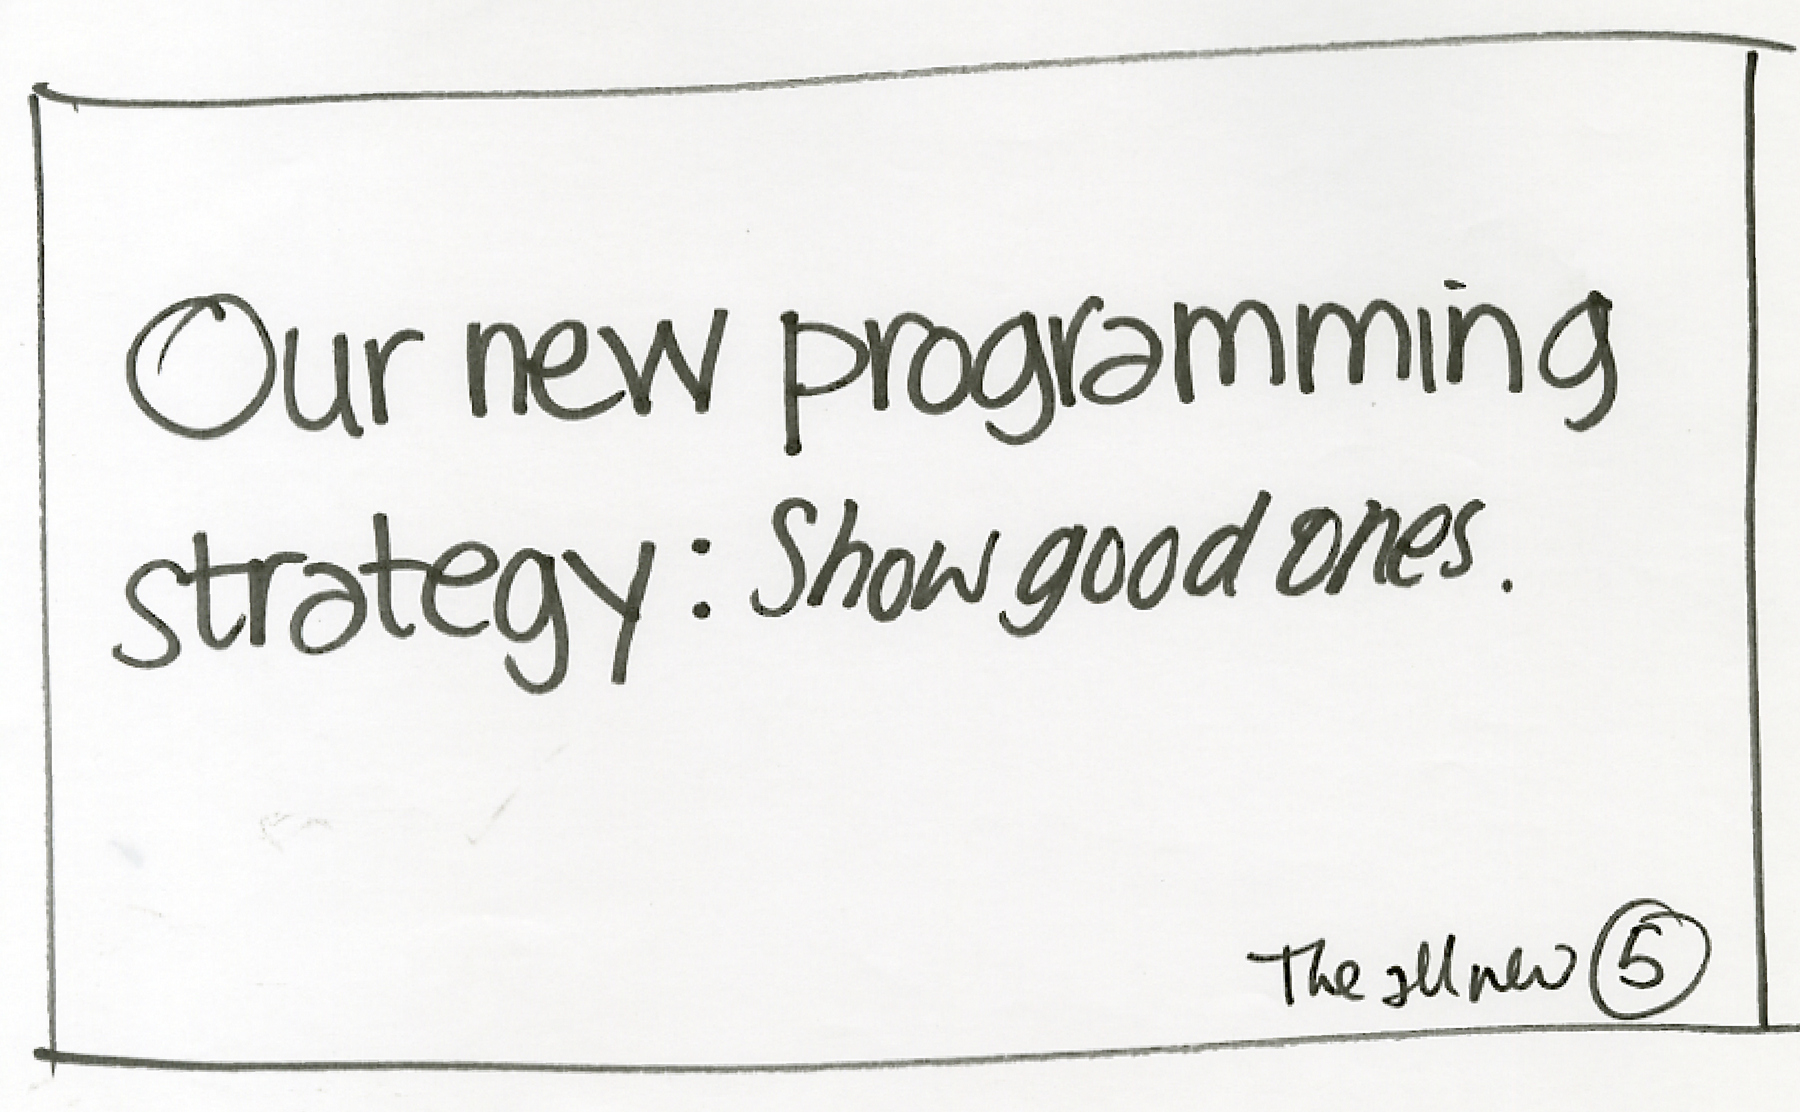 Our new programming
strategy: Show good ones.
The all new 5